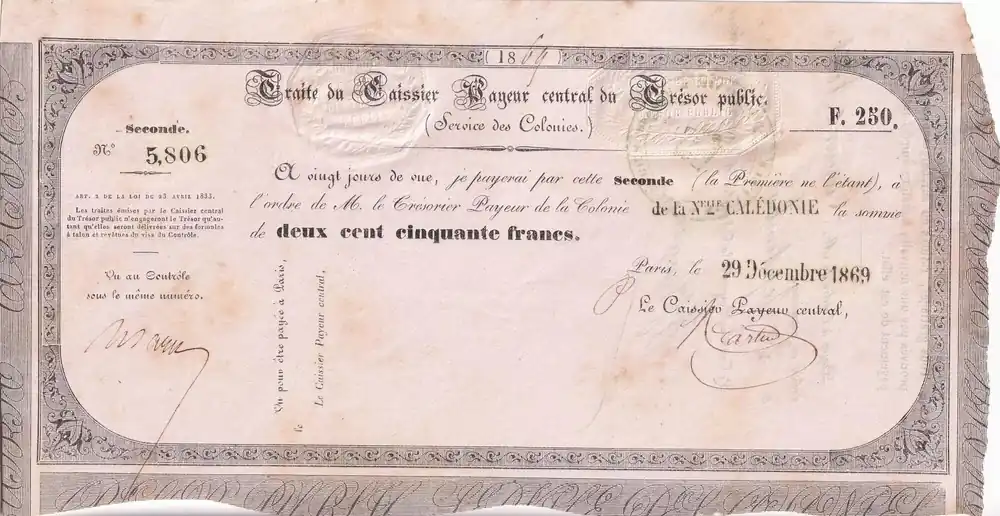 1869
Traite du Caissier Payeur central du Trésor public.
(Service des Colonies.)
F. 250.
Seconde.
N° 5,806
ART. 2 DE LA LOI DU 23 AVRIL 1833.
Les traites émises par le Caissier central
du Trésor public n'engageront le Trésor qu'au-
tant qu'elles seront délivrées sur des formules
à talon et revêtues du visa du Contrôle.
Vu au Contrôle
sous le même numéro.
A vingt jours de vue, je payerai par cette Seconde (la Première ne l'étant), à
l'ordre de M. le Trésorier Payeur de la Colonie de la Nelle CALÉDONIE la somme
de deux cent cinquante francs.
Paris, le 29 Décembre 1869
Le Caissier Payeur central,
Vu pour être payée à Paris,
le
Le Caissier Payeur central,